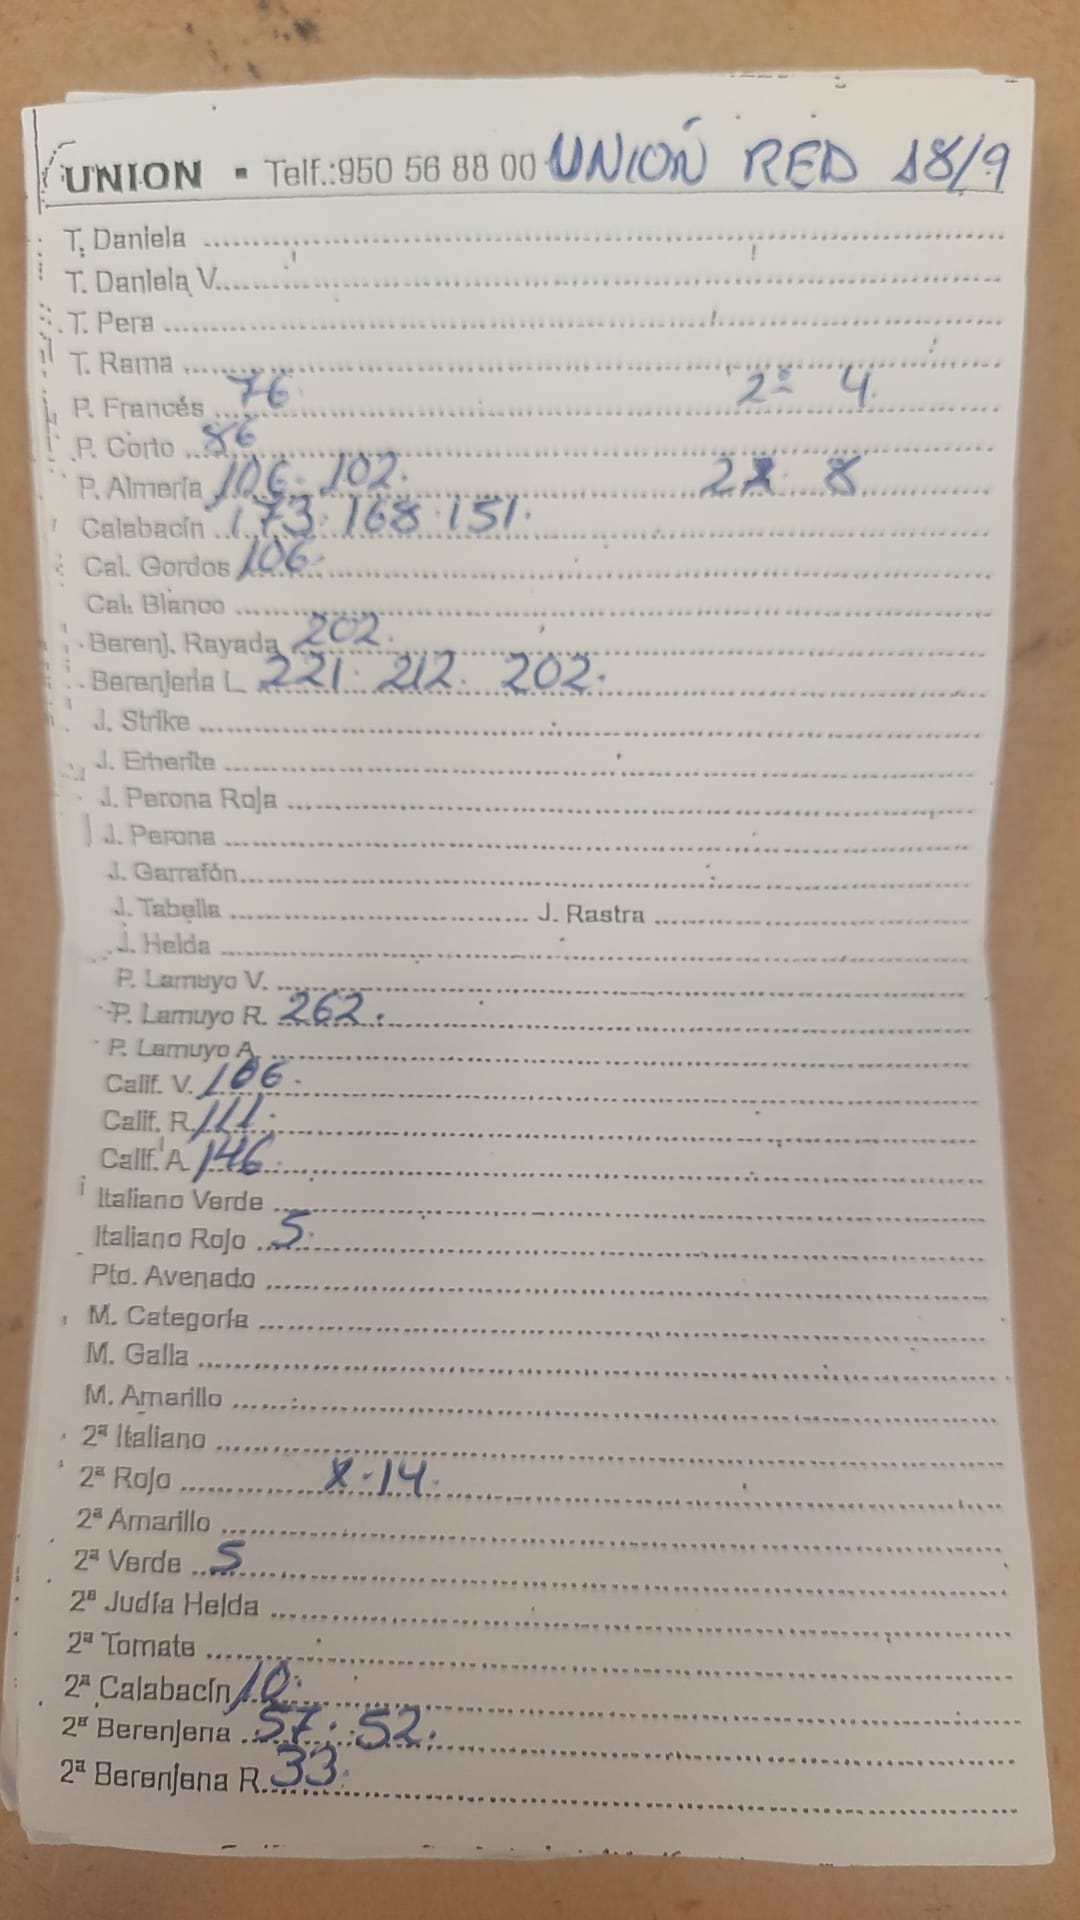 UNION ▪ Telf.:950 56 88 00 UNIÓN RED 18/9
T. Daniela
T. Daniela V.
T. Pera
T. Rama
P. Francés 76. 2ª 4.
P. Corto 86
P. Almería 106. 102. 2ª. 8
Calabacín 173. 168. 151.
Cal. Gordos 106.
Cal. Blanco
Berenj. Rayada 202.
Berenjena L. 221. 212. 202.
J. Strike
J. Emerite
J. Perona Roja
J. Perona
J. Garrafón
J. Tabella J. Rastra
J. Helda
P. Lamuyo V.
P. Lamuyo R. 262.
P. Lamuyo A.
Calif. V. 106.
Calif. R. 111.
Calif. A. 146.
Italiano Verde
Italiano Rojo 5.
Pto. Avenado
M. Categoría
M. Galia
M. Amarillo
2ª Italiano
2ª Rojo 14.
2ª Amarillo
2ª Verde 5
2ª Judía Helda
2ª Tomate
2ª Calabacín 10.
2ª Berenjena 57. 52.
2ª Berenjena R. 33.